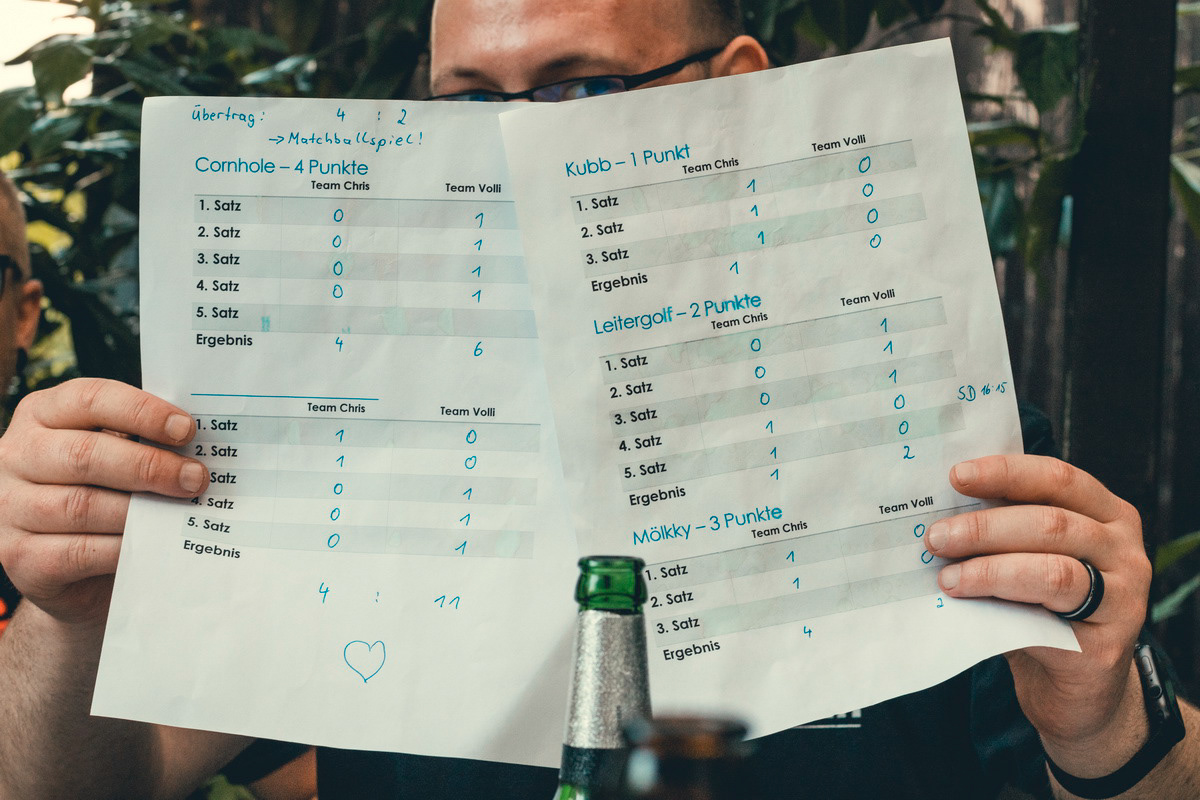 Übertrag: 4 : 2
→ Matchballspiel!
Cornhole – 4 Punkte
Team Chris Team Volli
1. Satz 0 1
2. Satz 0 1
3. Satz 0 1
4. Satz 0 1
5. Satz
Ergebnis 4 6
Team Chris Team Volli
1. Satz 1 0
2. Satz 1 0
Satz 0 1
4. Satz 0 1
5. Satz 0 1
Ergebnis
4 : 11
Kubb – 1 Punkt
Team Chris Team Volli
1. Satz 1 0
2. Satz 1 0
3. Satz 1 0
Ergebnis 1 0
Leitergolf – 2 Punkte
Team Chris Team Volli
1. Satz 0 1
2. Satz 0 1
3. Satz 0 1
4. Satz 1 0 SD 16:15
5. Satz 1 0
Ergebnis 1 2
Mölkky – 3 Punkte
Team Chris Team Volli
1. Satz 1 0
2. Satz 1 0
3. Satz
Ergebnis 4 2